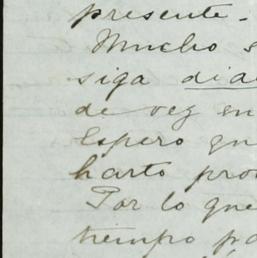 presente.
Mucho s
siga dia
de vez en
Espero qu
harto pro
Por lo que
tiempo pa